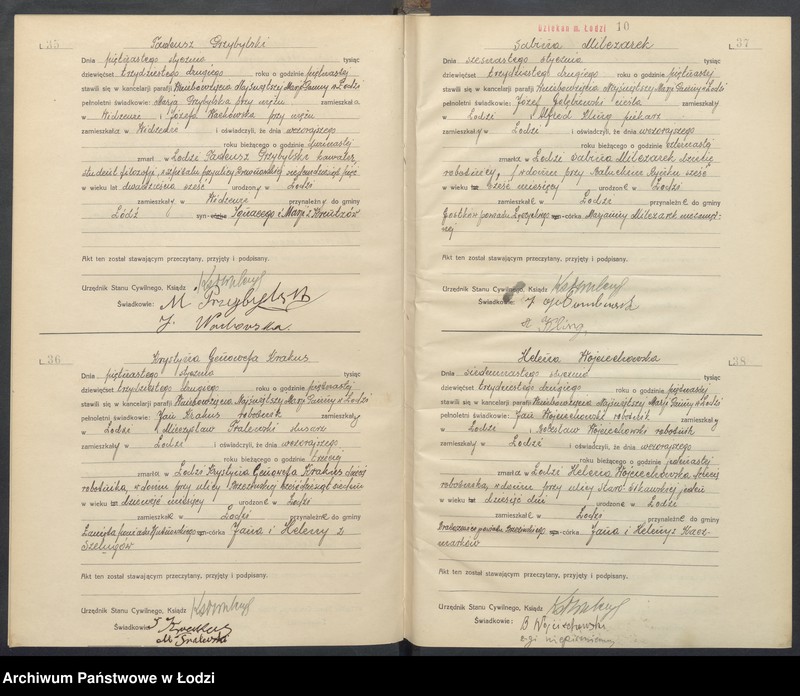 35
Tadeusz Przybylski
Dnia piętnastego stycznia tysiąc
dziewięćset trzydziestego drugiego roku o godzinie piętnastej
stawili się w kancelarji parafji Wniebowzięcia Najświętszej Marji Panny w Łodzi
pełnoletni świadkowie: Marja Przybylska przy mężu zamieszkała
w Widzewie i Józefa Wachowska przy mężu
zamieszkała w Widzewie i oświadczyli, że dnia wczorajszego
roku bieżącego o godzinie
zmarł w Łodzi Tadeusz Przybylski kawaler,
student filozofji,
w wieku lat dwadzieścia sześć urodzony w Łodzi
zamieszkały w Widzewie przynależny do gminy
Łódź syn Ignacego i Marji z
Akt ten został stawającym przeczytany, przyjęty i podpisany.
Urzędnik Stanu Cywilnego, Ksiądz
Świadkowie: M. Przybylska
J. Wachowska.
36
Krystyna Genowefa Krakus
Dnia piętnastego stycznia tysiąc
dziewięćset trzydziestego drugiego roku o godzinie piętnastej
stawili się w kancelarji parafji Wniebowzięcia Najświętszej Marji Panny w Łodzi
pełnoletni świadkowie: Jan Krakus robotnik zamieszkały
w Łodzi i Mieczysław Fralewski
zamieszkały w Łodzi i oświadczyli, że dnia wczorajszego
roku bieżącego o godzinie trzeciej
zmarła w Łodzi Krystyna Genowefa Krakus dziecię
robotnika, w domu przy ulicy
w wieku dziewięć miesięcy urodzone w Łodzi
zamieszkałe w Łodzi przynależne do gminy
córka Jana i Heleny z
Szelągów
Akt ten został stawającym przeczytany, przyjęty i podpisany.
Urzędnik Stanu Cywilnego, Ksiądz
Świadkowie: J. Krakus
M. Fralewski
10
37
Sabina Milczarek
Dnia szesnastego stycznia tysiąc
dziewięćset trzydziestego drugiego roku o godzinie piętnastej
stawili się w kancelarji parafji Wniebowzięcia Najświętszej Marji Panny w Łodzi
pełnoletni świadkowie: Józef zamieszkały
w Łodzi i Alfred Kling piekarz
zamieszkały w Łodzi i oświadczyli, że dnia wczorajszego
roku bieżącego o godzinie
zmarła w Łodzi Sabina Milczarek dziecię
robotnicy, w domu przy Bałuckim Rynku sześć
w wieku sześć miesięcy urodzone w Łodzi
zamieszkałe w Łodzi przynależne do gminy
powiatu córka Marjanny Milczarek niezamęż-
nej
Akt ten został stawającym przeczytany, przyjęty i podpisany.
Urzędnik Stanu Cywilnego, Ksiądz
Świadkowie:
A. Kling
38
Helena Wojciechowska
Dnia siedemnastego stycznia tysiąc
dziewięćset trzydziestego drugiego roku o godzinie piętnastej
stawili się w kancelarji parafji Wniebowzięcia Najświętszej Marji Panny w Łodzi
pełnoletni świadkowie: Jan Wojciechowski robotnik zamieszkały
w Łodzi i Bolesław Wojciechowski robotnik
zamieszkały w Łodzi i oświadczyli, że dnia wczorajszego
roku bieżącego o godzinie
zmarła w Łodzi Helena Wojciechowska dziecię
robotnika, w domu przy ulicy
w wieku dziesięć dni urodzone w Łodzi
zamieszkałe w Łodzi przynależne do gminy
powiatu córka Jana i Heleny z Kacz-
marków
Akt ten został stawającym przeczytany, przyjęty i podpisany.
Urzędnik Stanu Cywilnego, Ksiądz
Świadkowie: B Wojciechowski
Archiwum Państwowe w Łodzi